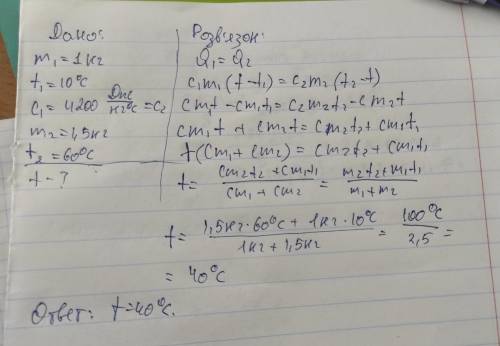 Дано:
m₁ = 1 кг
t₁ = 10°C
c₁ = 4200 Дж/кг°C = c₂
m₂ = 1,5 кг
t₂ = 60°C
t - ?
Розвязок:
Q₁ = Q₂
c₁m₁(t-t₁) = c₂m₂(t₂-t)
cm₁t - cm₁t₁ = c₂m₂t₂ - cm₂t
cm₁t + cm₂t = cm₂t₂ + cm₁t₁
t(cm₁ + cm₂) = cm₂t₂ + cm₁t₁
t = (cm₂t₂ + cm₁t₁)/(cm₁ + cm₂) = (m₂t₂ + m₁t₁)/(m₁ + m₂)
t = (1,5кг · 60°C + 1кг · 10°C)/(1кг + 1,5кг) = 100°C/2,5 =
= 40°C
Ответ: t = 40°C.